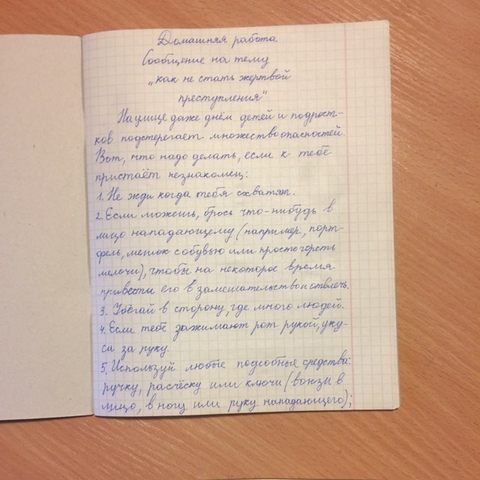 Домашняя работа
Сообщение на тему
"как не стать жертвой
преступления"
На улице даже днём детей и подрост-
ков подстерегает множество опасностей.
Вот, что надо делать, если к тебе
пристаёт незнакомец:
1. Не жди когда тебя схватят.
2. Если можешь, брось что-нибудь в
лицо нападающему (например, порт-
фель, мешок с обувью или просто горсть
мелочи), чтобы на некоторое время
привести его в замешательство и отвлечь.
3. Убегай в сторону, где много людей.
4. Если тебе зажимают рот рукой, уку-
си за руку.
5. Используй любые подсобные средства:
ручку, расчёску или ключи (вонзи в
лицо, в ногу или руку нападающего);